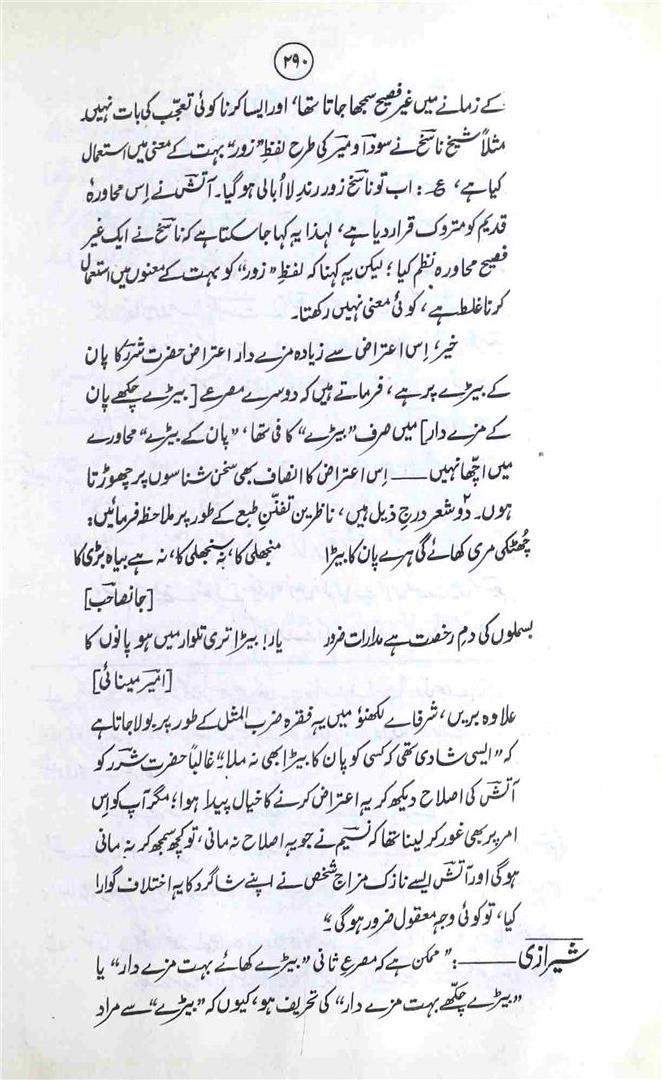 ۲۹۰
کے زمانے میں غیر فصیح سمجھا جاتا تھا، اور ایسا کرنا کوئی تعجّب کی بات نہیں۔
مثلاً شیخ ناسخ نے سودا و میر کی طرح لفظِ ”زور“ بہت کے معنی میں استعمال
کیا ہے، ع: اب تو ناسخ زور رندِ لااُبالی ہو گیا۔ آتش نے اِس محاورہٗ
قدیم کو متروک قرار دیا ہے، لہٰذا یہ کہا جا سکتا ہے کہ ناسخ نے ایک غیر
فصیح محاورہ نظم کیا؛ لیکن یہ کہنا کہ لفظِ ”زور“ کو بہت کے معنوں میں استعمال
کرنا غلط ہے، کوئی معنی نہیں رکھتا۔
خیر، اِس اعتراض سے زیادہ مزے دار اعتراض حضرت شرر کا پان
کے بیڑے پر ہے، فرماتے ہیں کہ دوسرے مصرعے [بیڑے چکھے پان
کے مزے دار] میں صرف ”بیڑے“ کافی تھا، ”پان کے بیڑے“ محاورے
میں اچھّا نہیں —— اِس اعتراض کا انصاف بھی سخن شناسوں پر چھوڑتا
ہوں۔ دو شعر درجِ ذیل ہیں، ناظرین تفنّنِ طبع کے طور پر ملاحظہ فرمائیں:
چھٹکی مری کھائے گی ہرے پان کا بیڑا منجھلی کا، نہ سنجھلی کا، نہ ہے بیاہ بڑی کا
[جانصاحب]
بسملوں کی دمِ رخصت ہے مدارات ضرور یار! بیڑا تری تلوار میں ہو پانوں کا
[امیر مینائی]
علاوہ بریں، شرفاے لکھنؤ میں یہ فقرہ ضرب المثل کے طور پر بولا جاتا ہے
کہ ”ایسی شادی تھی کہ کسی کو پان کا بیڑا بھی نہ ملا“۔ غالباً حضرت شرر کو
آتش کی اصلاح دیکھ کر یہ اعتراض کرنے کا خیال پیدا ہوا؛ مگر آپ کو اِس
امر پر بھی غور کر لینا تھا کہ نسیم نے جو یہ اصلاح نہ مانی، تو کچھ سمجھ کر نہ مانی
ہوگی اور آتش ایسے نازک مزاج شخص نے اپنے شاگرد کا یہ اختلاف گوارا
کیا، تو کوئی وجہِ معقول ضرور ہوگی۔“
شیرازی ——: ”ممکن ہے کہ مصرعِ ثانی ”بیڑے کھائے بہت مزے دار“ یا
”بیڑے چکھے بہت مزے دار“ کی تحریف ہو، کیوں کہ ”بیڑے“ سے مراد